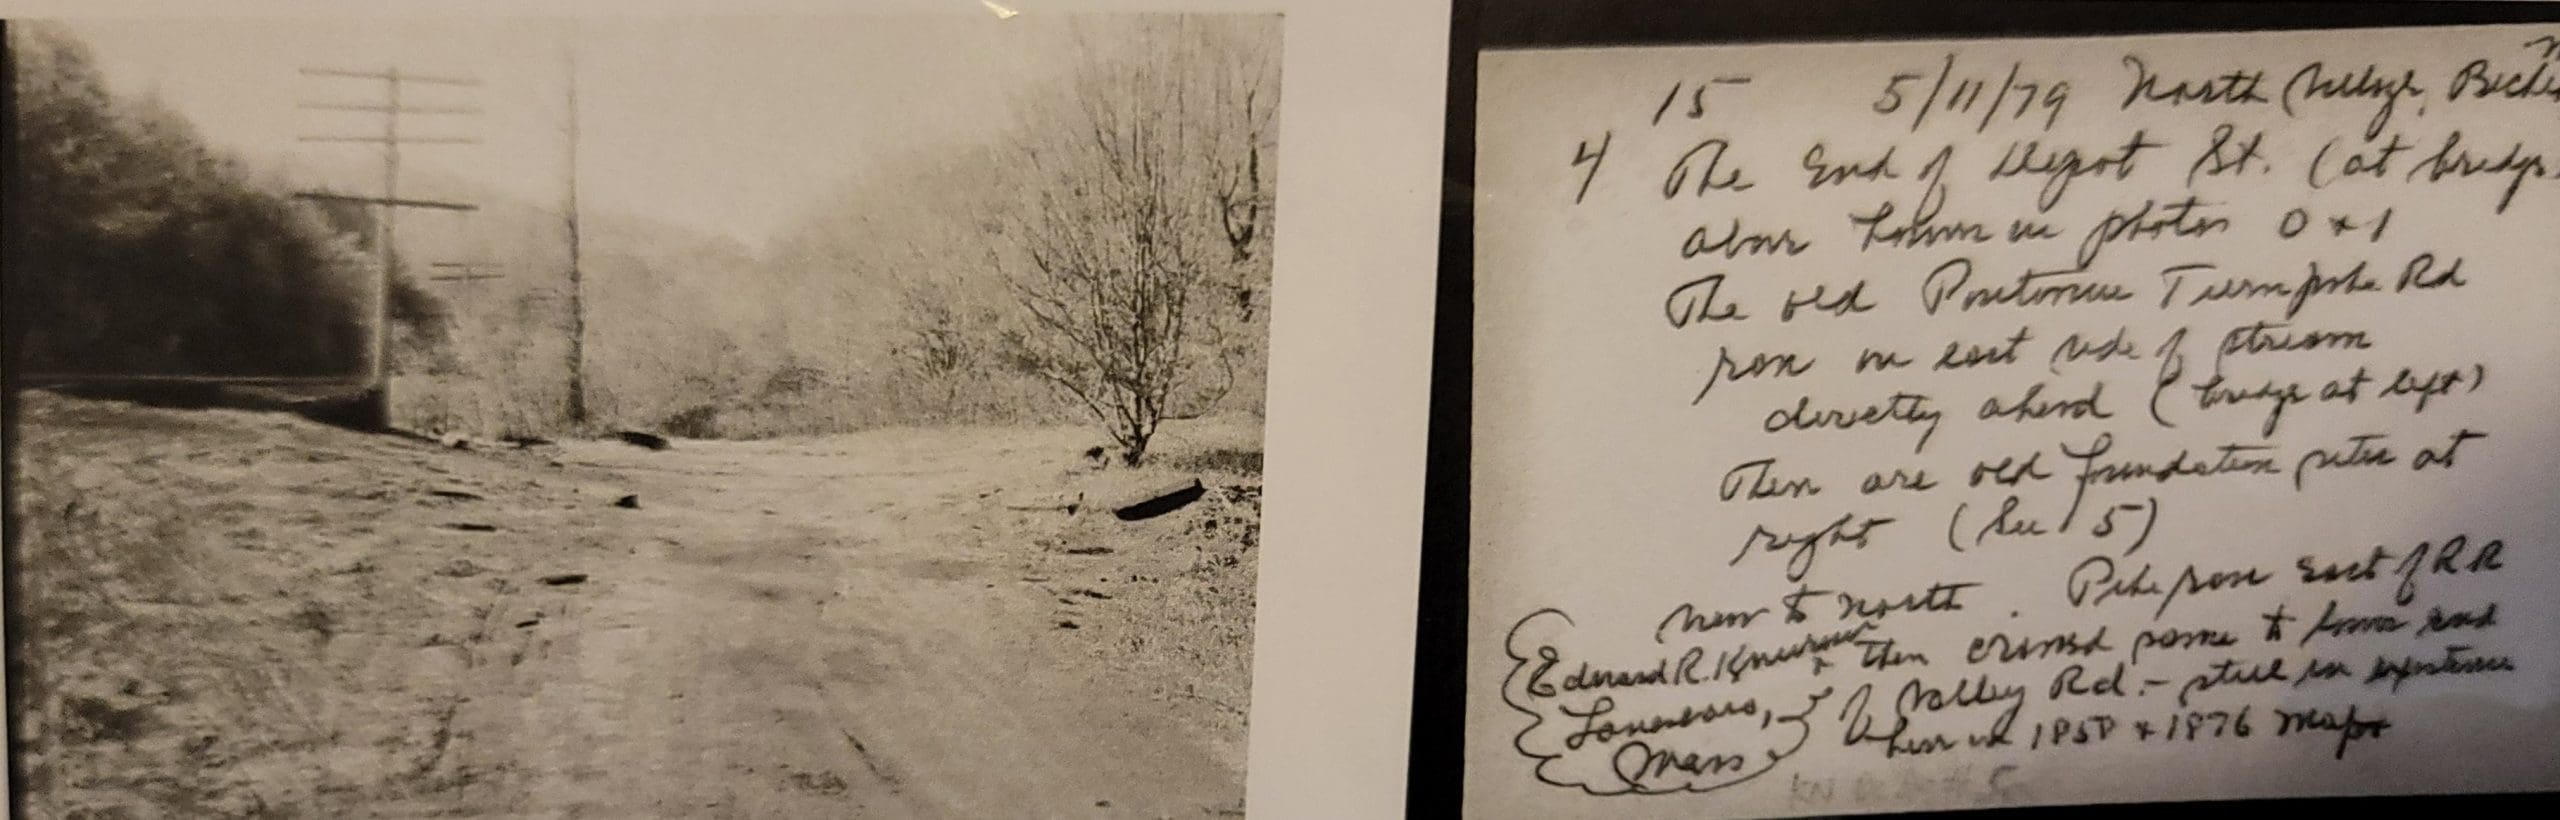 15 5/11/79 North Village, Becke
4 The End of Depot St. (at bridge
above shown in photos 0 + 1
The old Pontoosuc Turnpike Rd
ran on east side of stream
directly ahead (bridge at left)
There are old foundation sites at
right (See 5)
View to North. Pike ran East of RR
Edward R. Knurow + then crossed same to lower end
Lanesboro, of Valley Rd. - still in existence
Mass here in 1858 + 1876 maps